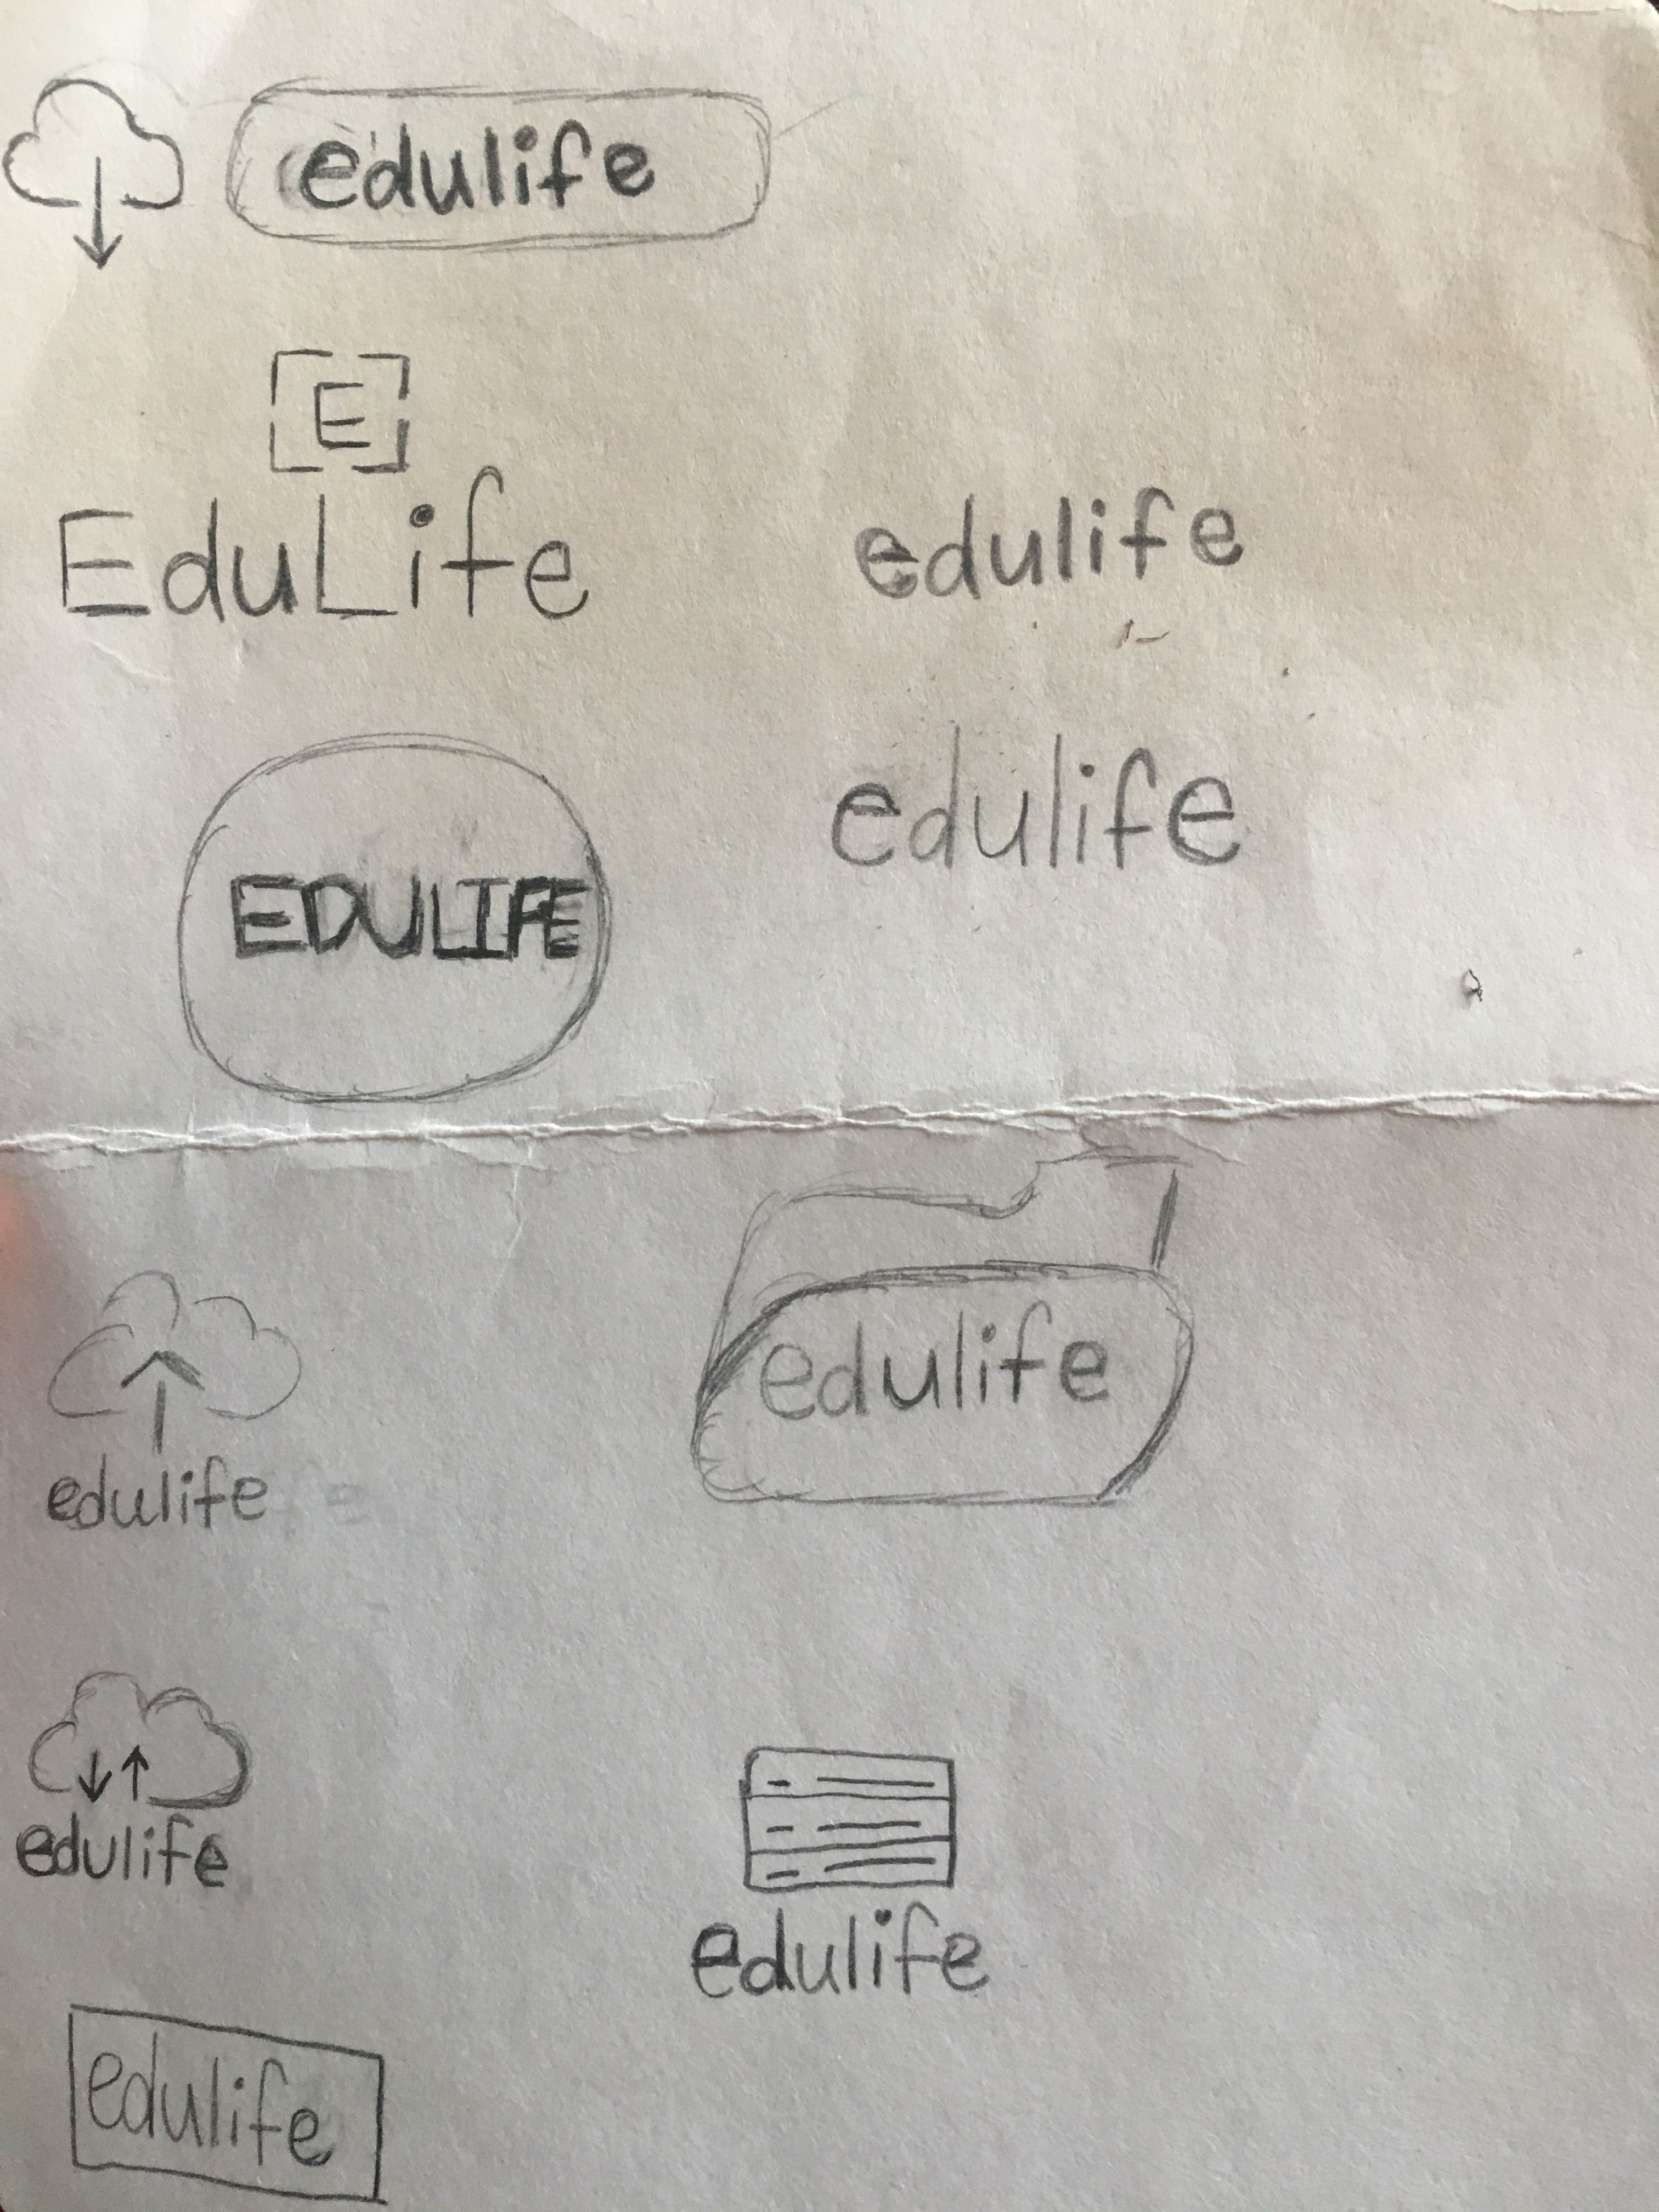 edulife
E
EduLife
edulife
edulife
EDULIFE
edulife
edulife
edulife
edulife
edulife